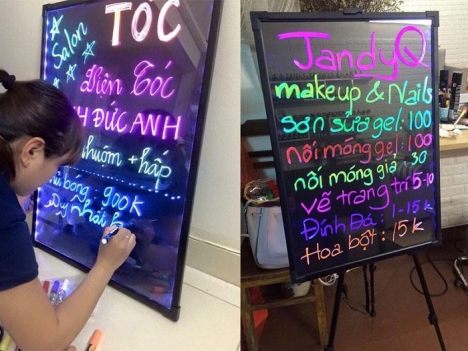 Salon TÓC
Viện Tóc
ĐỨC ANH
nhuộm + hấp
bóng 900K
Duy nhất
JandyQ
makeup & Nails
Sơn sửa gel: 100
nối móng gel: 100
nối móng giả: 30
vẽ trang trí 5-10
Đính Đá: 1-15k
Hoa bột: 15k